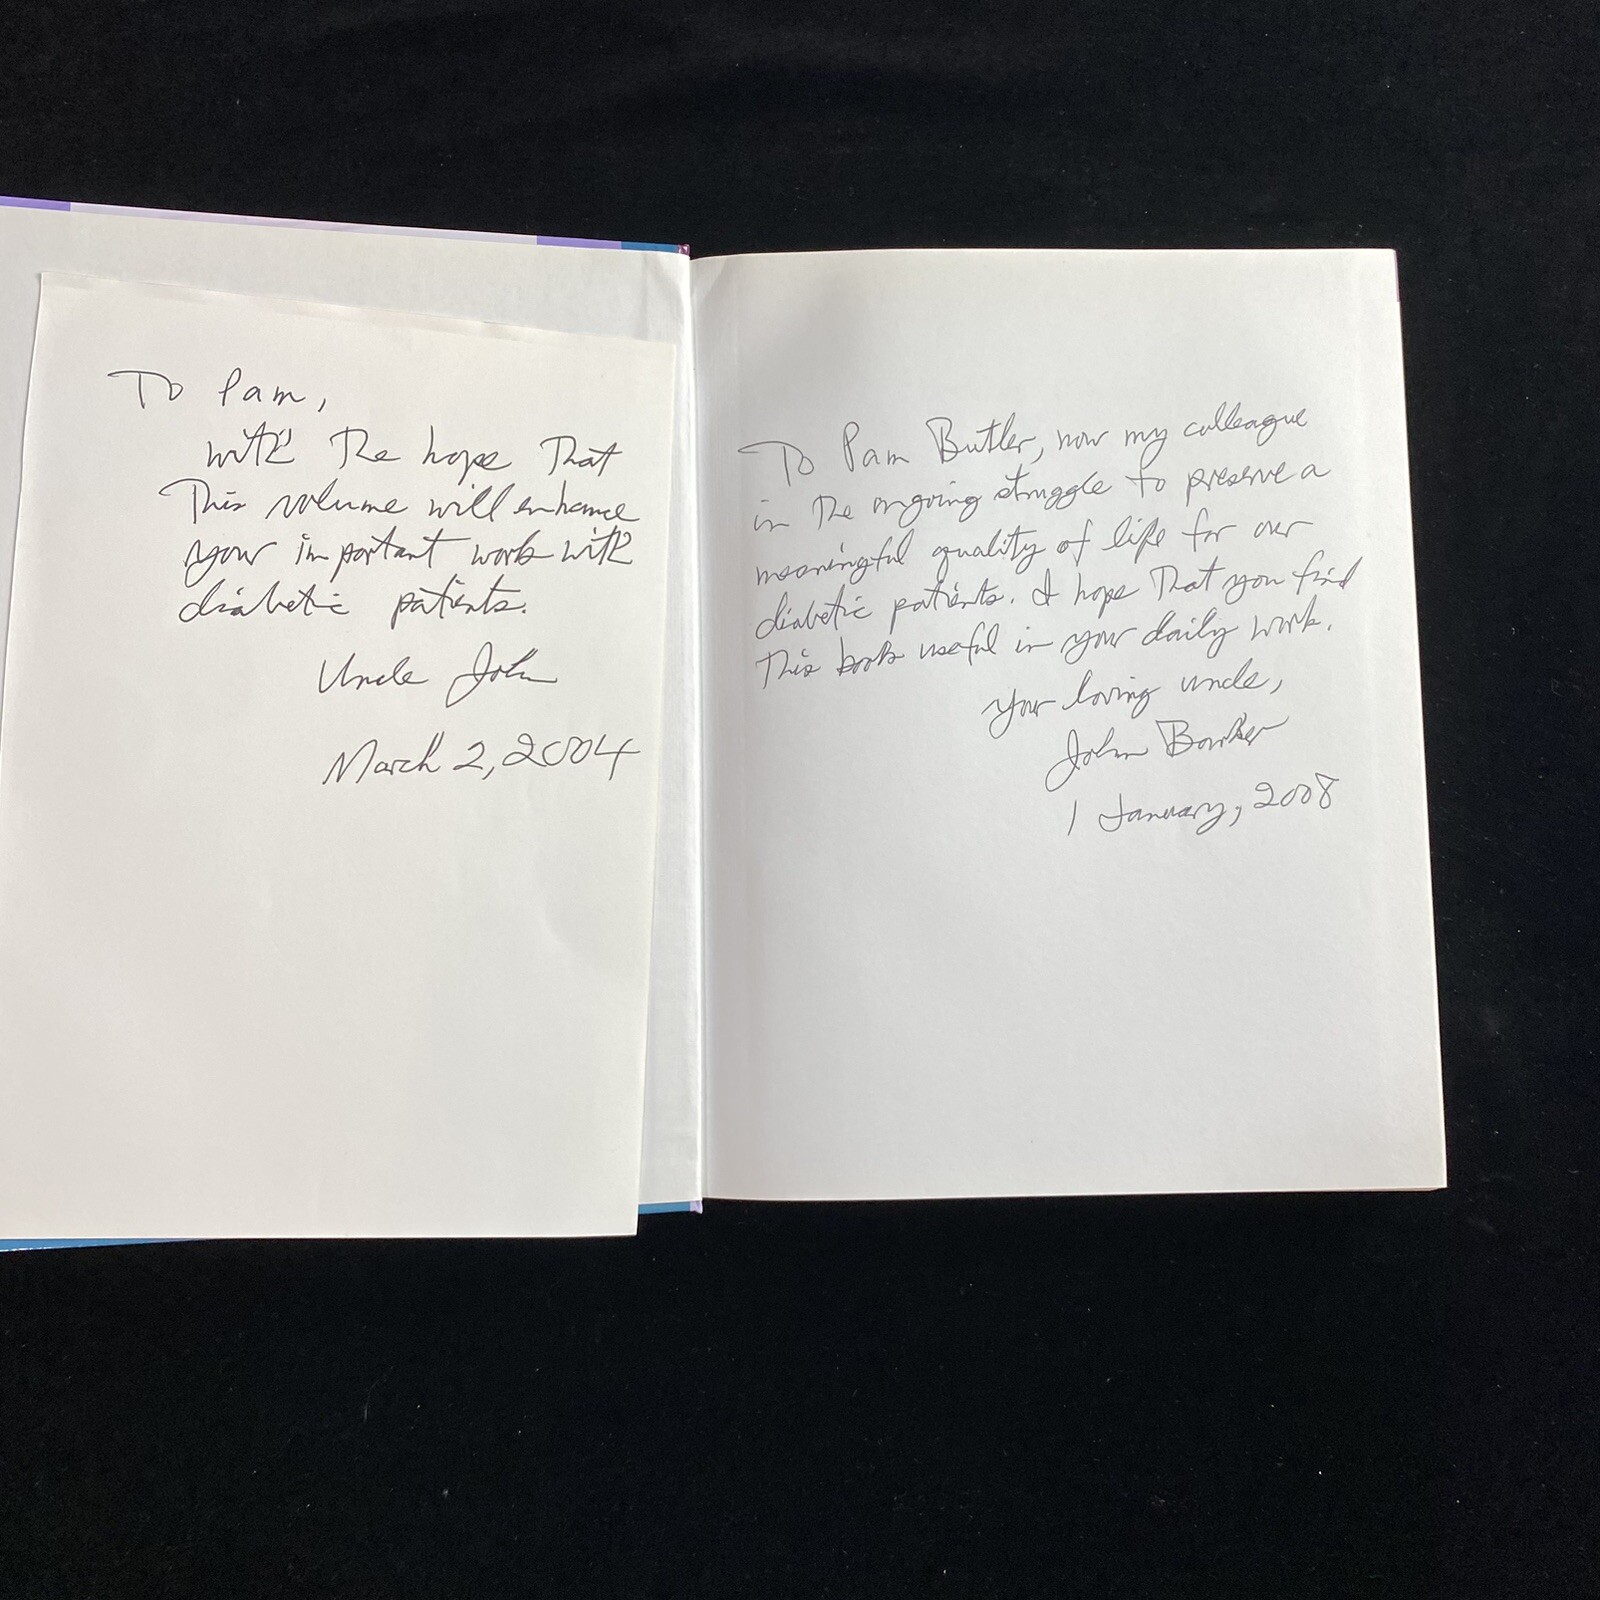 To Pam,
with the hope that
This volume will enhance
your important work with
diabetic patients.
Uncle John
March 2, 2004
To Pam Butler, now my colleague
in the ongoing struggle to preserve a
meaningful quality of life for our
diabetic patients. I hope that you find
this book useful in your daily work.
Your loving uncle,
John Barker
1 January, 2008